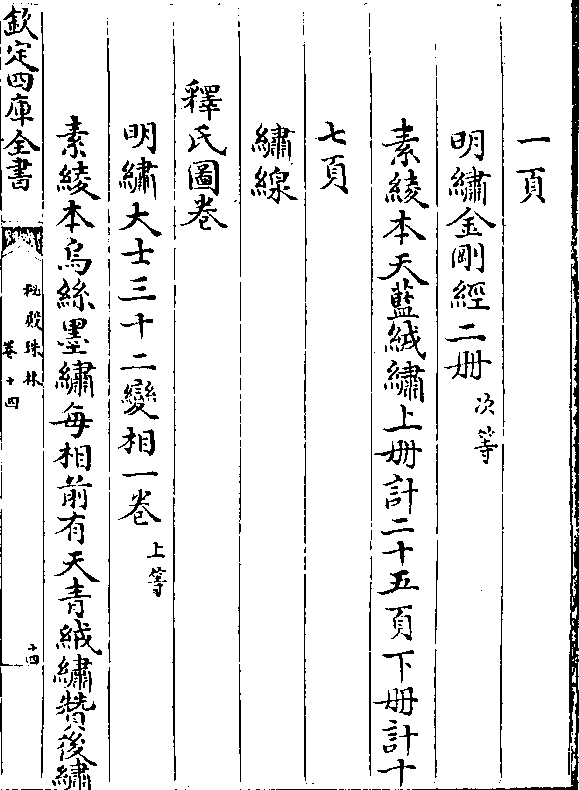 一頁
明繡金剛經二册次等
素綾本天藍絨繡上册計二十五頁下册計十
七頁
繡線
釋氏圖卷
明繡大士三十二變相一卷上等
素綾本烏絲墨繡每相前有天青絨繡贊後繡
欽定四庫全書
秘殿珠林
卷十四
十四